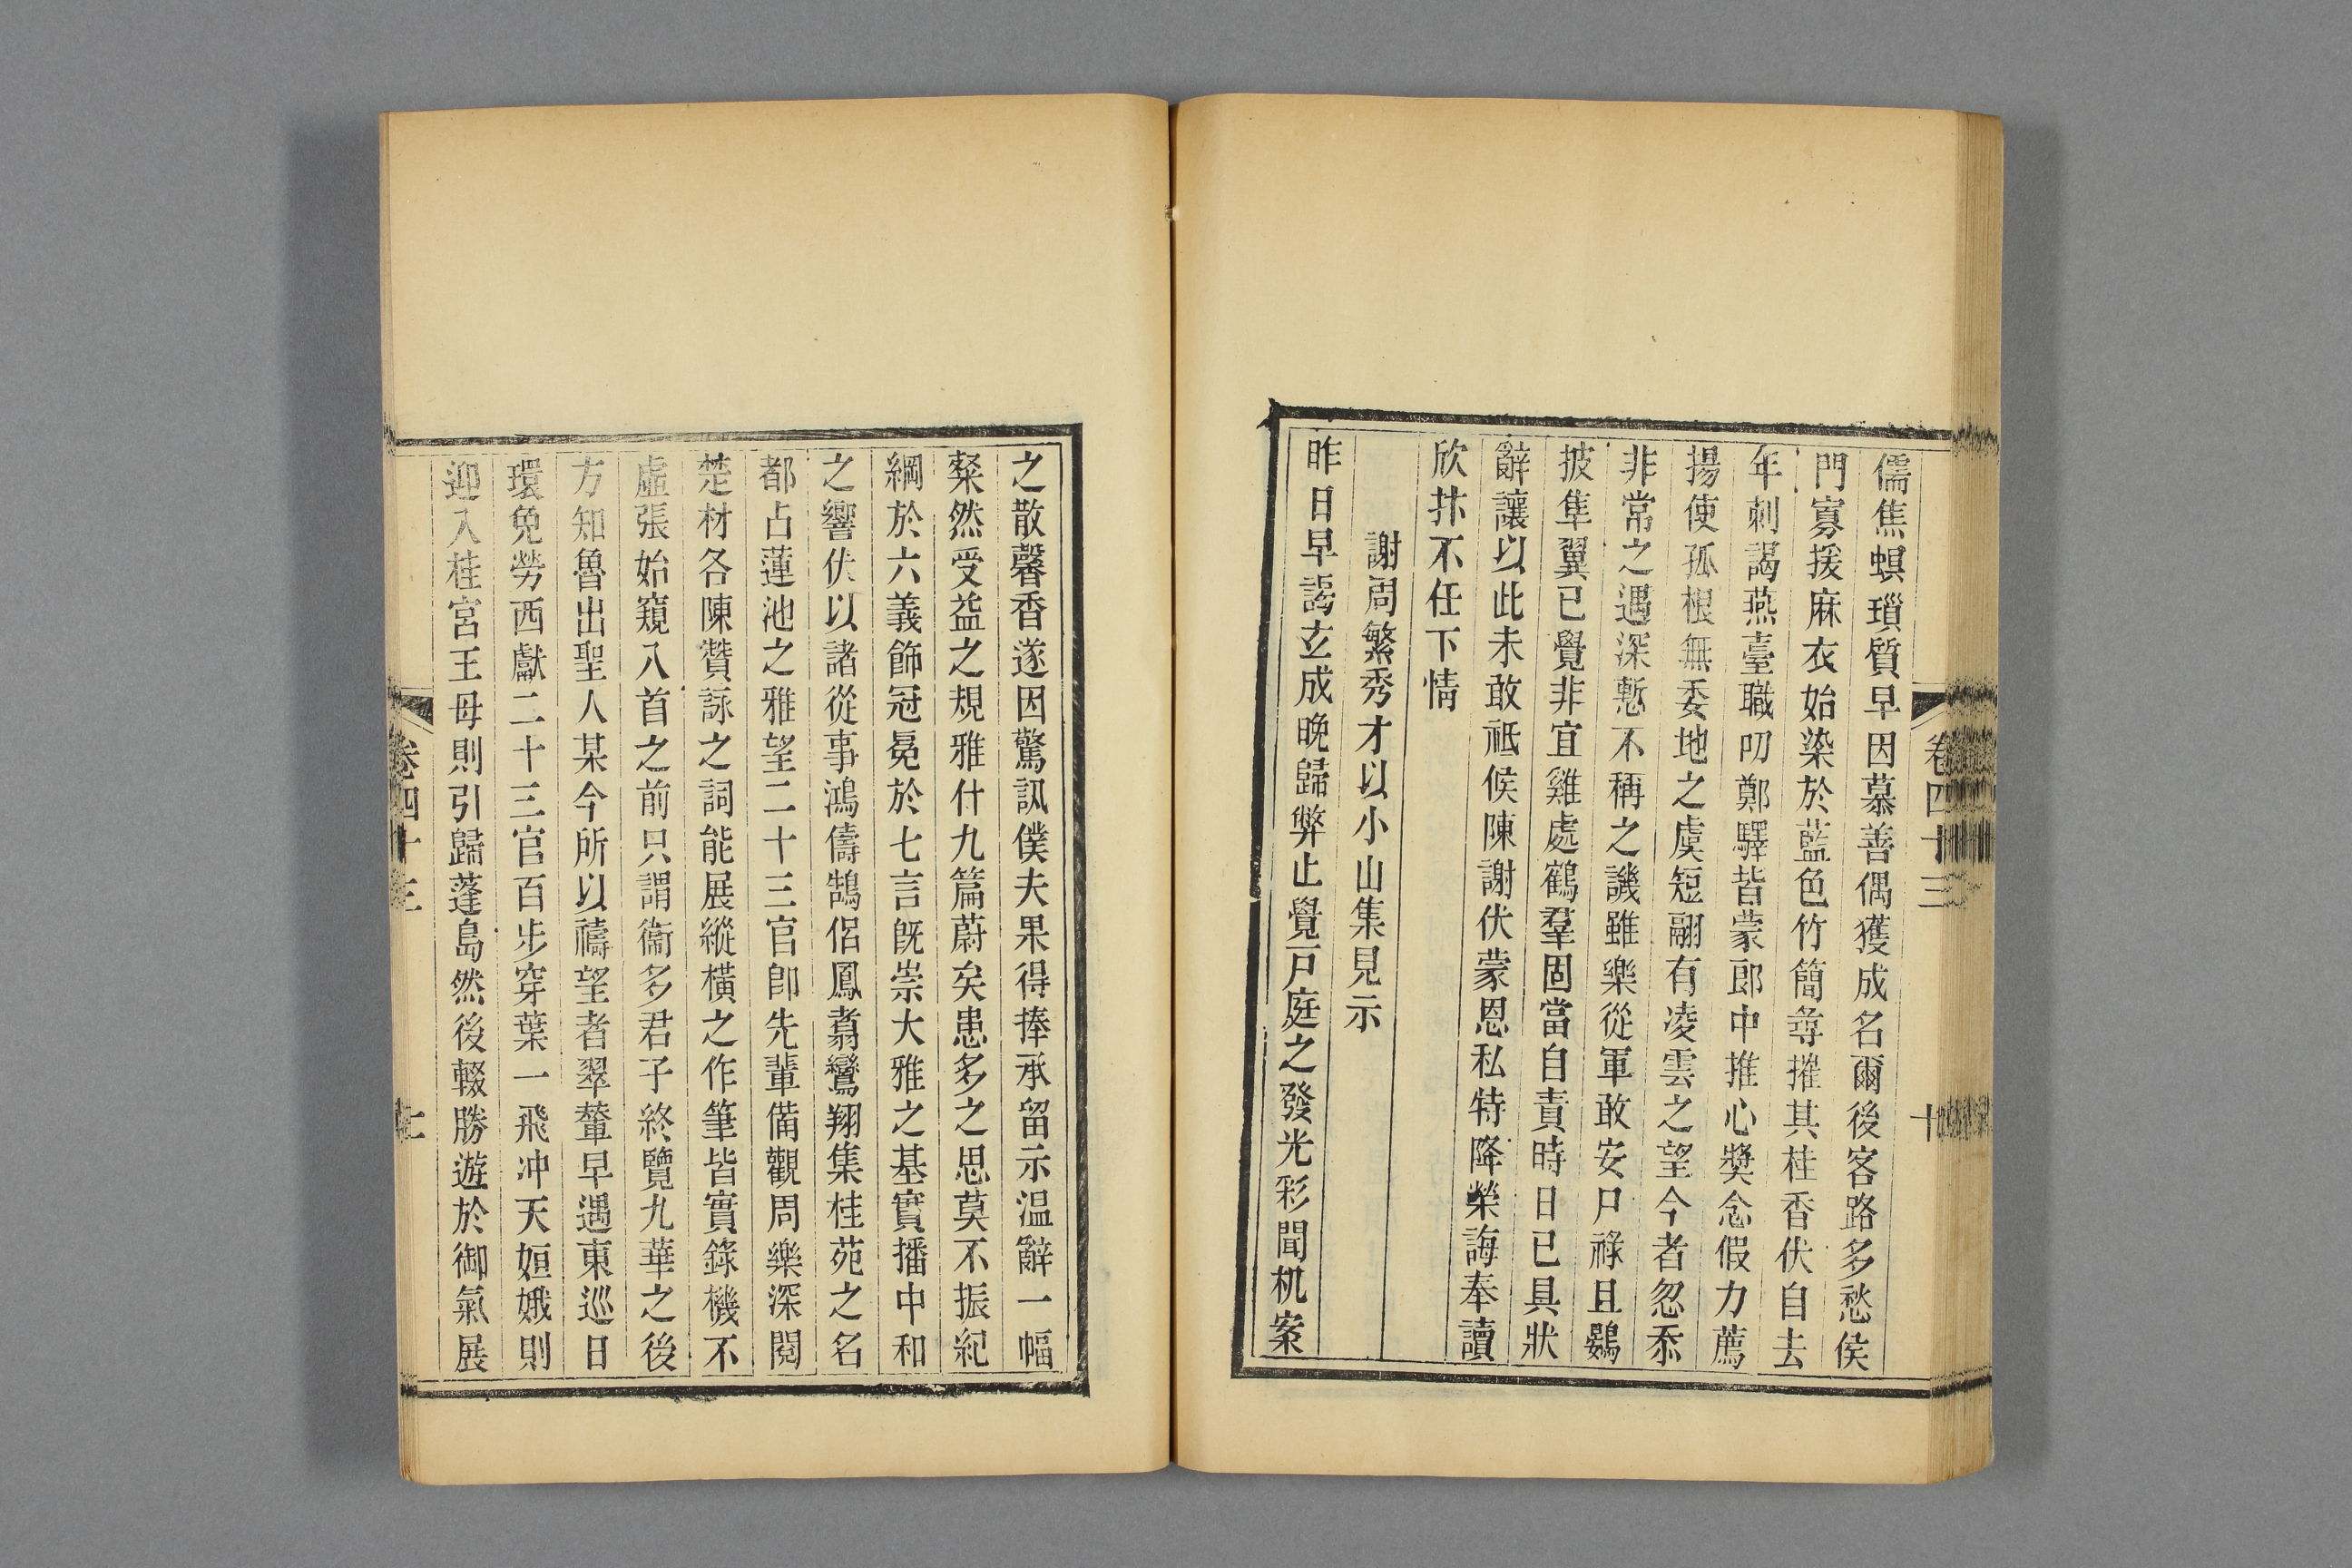 儒焦螟瑣質早因慕善偶獲成名爾後客路多愁侯
門寡援麻衣始染於藍色竹簡尋摧其桂香伏自去
年刺謁燕臺職叨鄭驛皆蒙郎中推心獎念假力薦
揚使孤根無委地之虞短翮有凌雲之望今者忽忝
非常之遇深慙不稱之譏雖樂從軍敢安尸祿且鷃
披隼翼已覺非宜雞處鶴羣固當自責時日已具狀
辭讓以此未敢祗候陳謝伏蒙恩私特降榮誨奉讀
欣抃不任下情
謝周繁秀才以小山集見示
昨日早謁玄成晚歸弊止覺戶庭之發光彩聞机案
之散馨香遂因驚訊僕夫果得捧承留示溫辭一幅
粲然受益之規雅什九篇蔚矣患多之思莫不振紀
綱於六義飾冠冕於七言既崇大雅之基實播中和
之響伏以諸從事鴻儔鵠侶鳳翥鸞翔集桂苑之名
都占蓮池之雅望二十三官卽先輩備觀周樂深閱
楚材各陳贊詠之詞能展縱橫之作筆皆實錄機不
虛張始窺八首之前只謂衞多君子終覽九華之後
方知魯出聖人某今所以禱望者翠輦早遇東巡日
環免勞西獻二十三官百步穿葉一飛冲天姮娥則
迎入桂宮王母則引歸蓬島然後輟勝遊於御氣展
卷四十三
十
卷四十三
十一